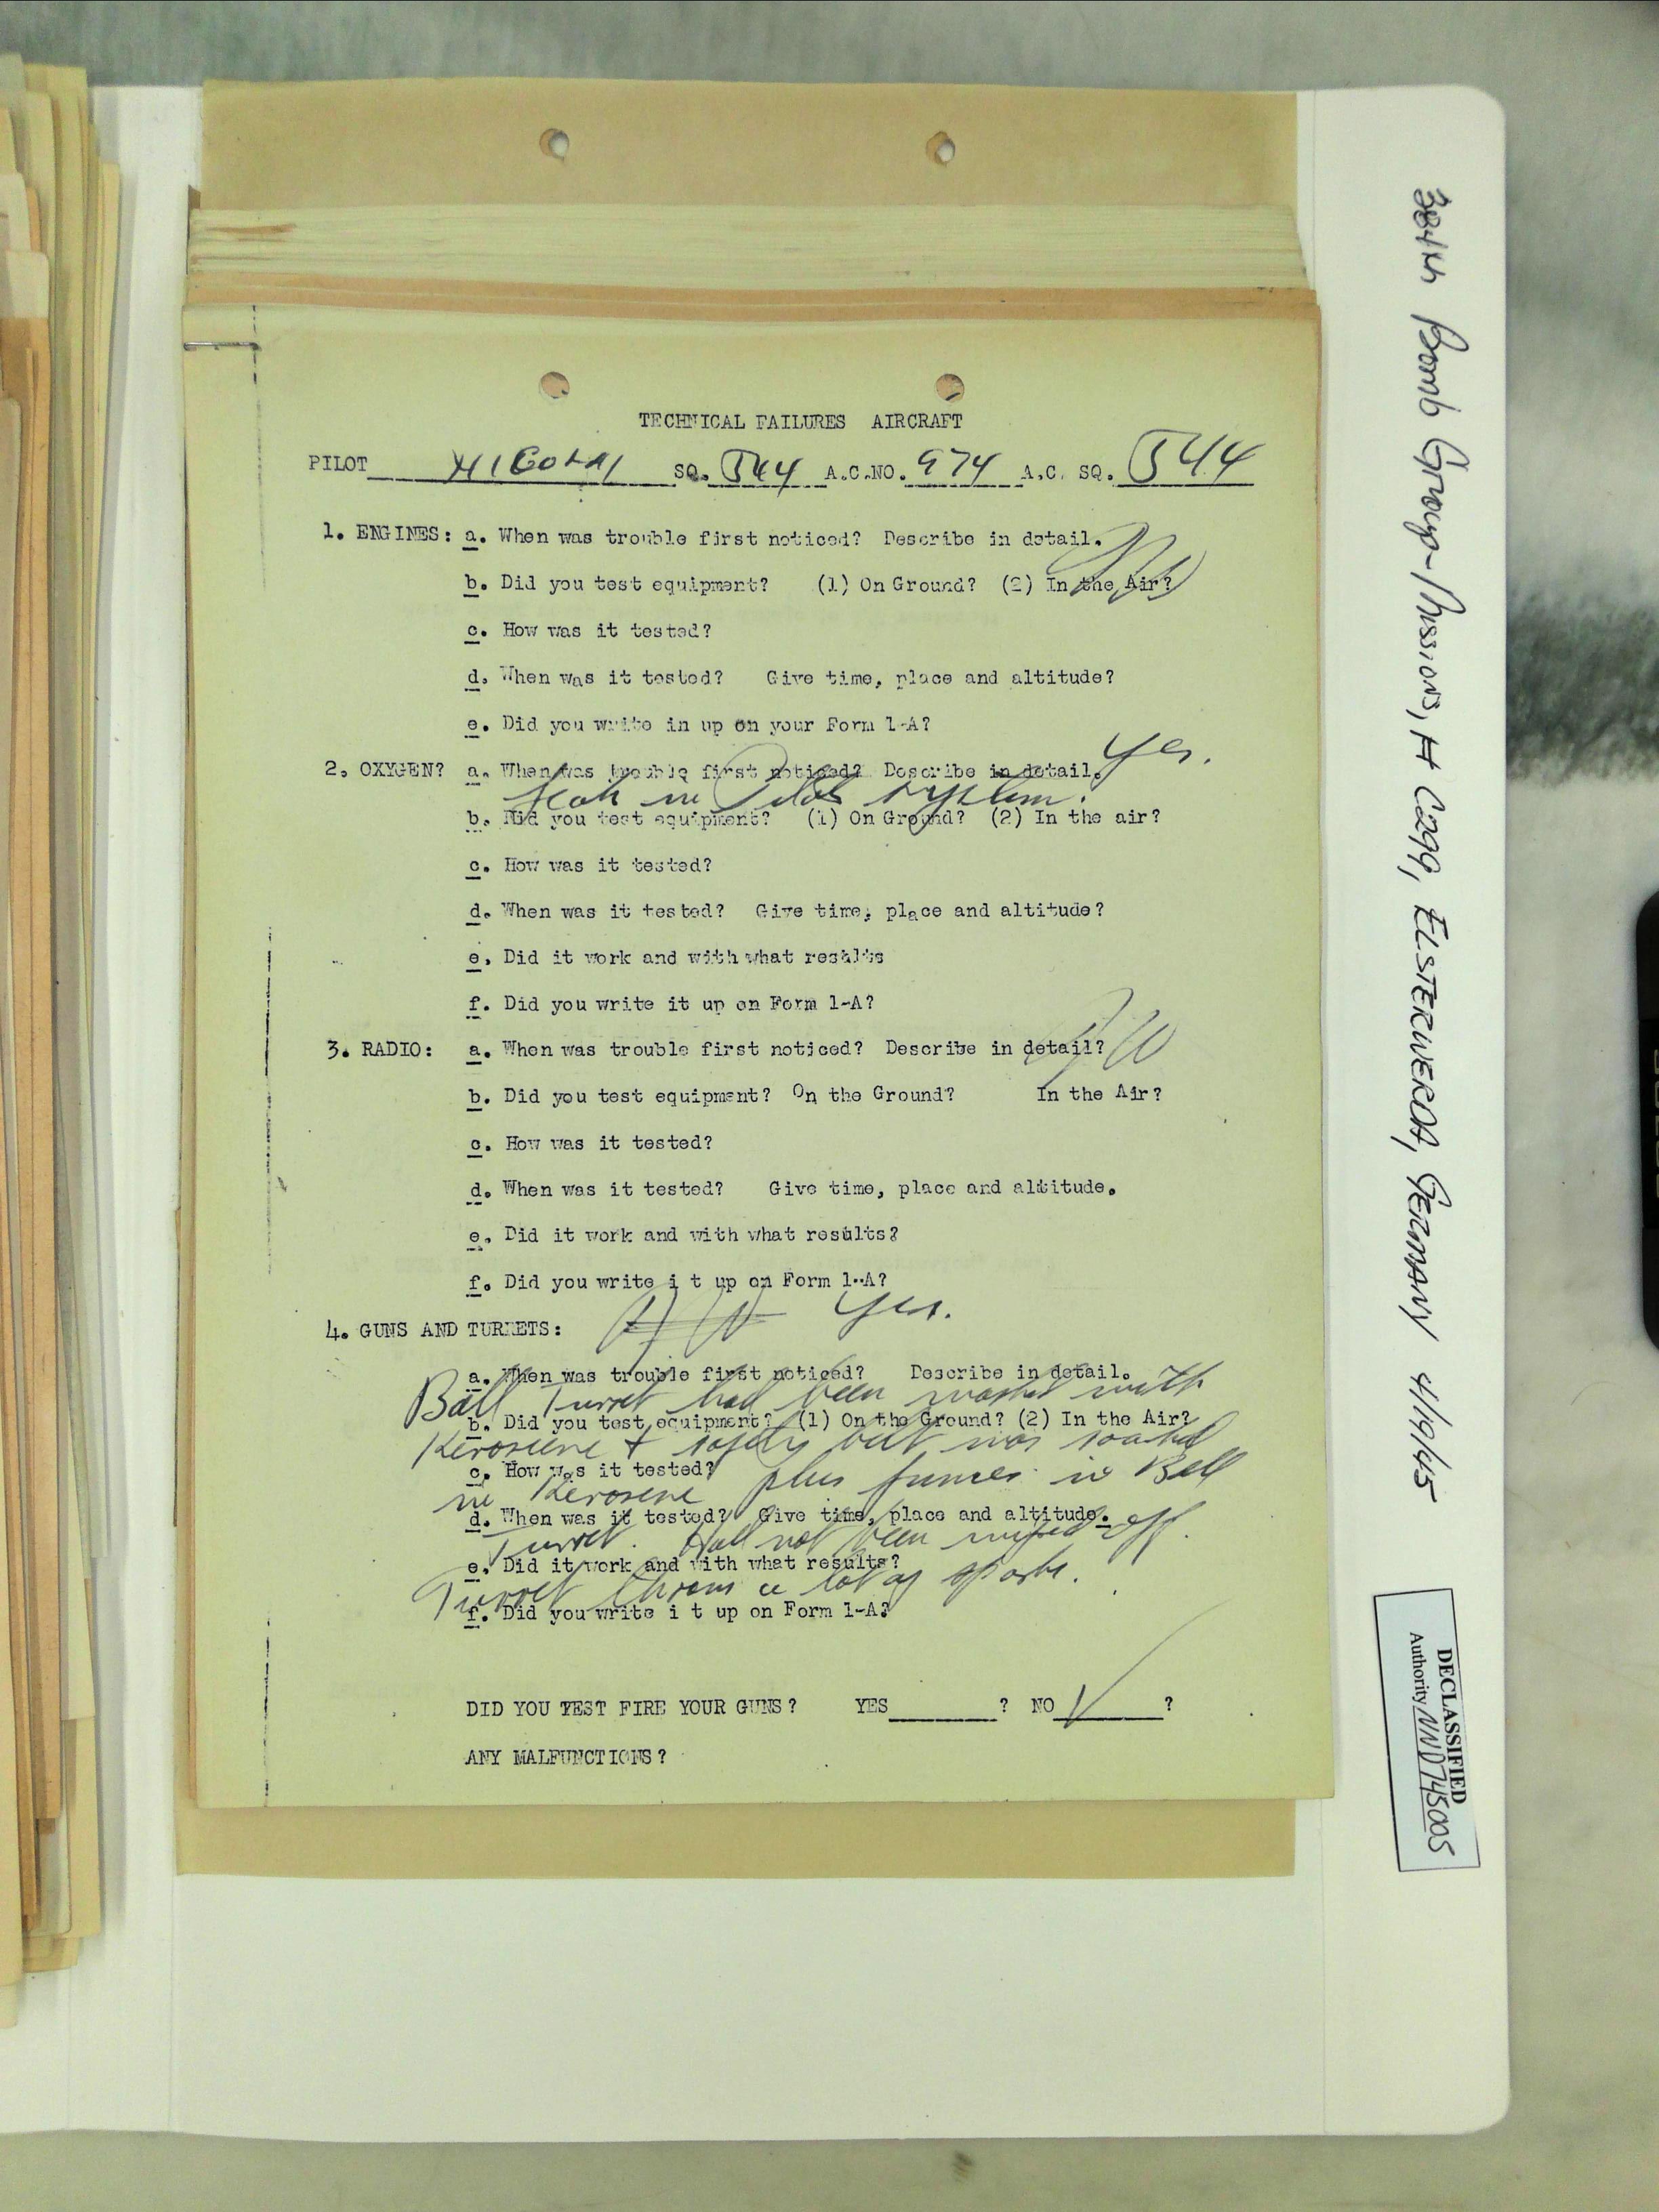 TECHNICAL FAILURES AIRCRAFT
PILOT SQ. 544 A.C.NO. 974 A.C. SQ. 544
1. ENGINES: a. When was trouble first noticed? Describe in detail.
b. Did you test equipment? (1) On Ground? (2) In the Air?
c. How was it tested?
d. When was it tested? Give time, place and altitude?
e. Did you write in up on your Form 1-A?
Yes.
2. OXYGEN? a. When was trouble first noticed? Describe in detail.
Leak in Pilots system.
b. Did you test equipment? (1) On Ground? (2) In the air?
c. How was it tested?
d. When was it tested? Give time, place and altitude?
e. Did it work and with what results
f. Did you write it up on Form 1-A?
3. RADIO: a. When was trouble first noticed? Describe in detail?
b. Did you test equipment? On the Ground? In the Air?
c. How was it tested?
d. When was it tested? Give time, place and altitude.
e. Did it work and with what results?
f. Did you write i t up on Form 1-A?
Yes.
4. GUNS AND TURRETS:
a. When was trouble first noticed? Describe in detail.
Ball Turret had been washed with
b. Did you test equipment? (1) On the Ground? (2) In the Air?
Kerosene + safety belt was soaked
c. How was it tested?
in Kerosene plus fumes in Ball
d. When was it tested? Give time, place and altitude.
Turret. Had not been wiped off.
e. Did it work and with what results?
Turret throws a lot of sparks.
f. Did you write i t up on Form 1-A?
DID YOU TEST FIRE YOUR GUNS? YES ? NO ✓ ?
ANY MALFUNCTIONS?
384th Bomb Group-Missions, # C299, ELSTERWERDA, GERMANY 4/19/45
DECLASSIFIED
Authority NND745005